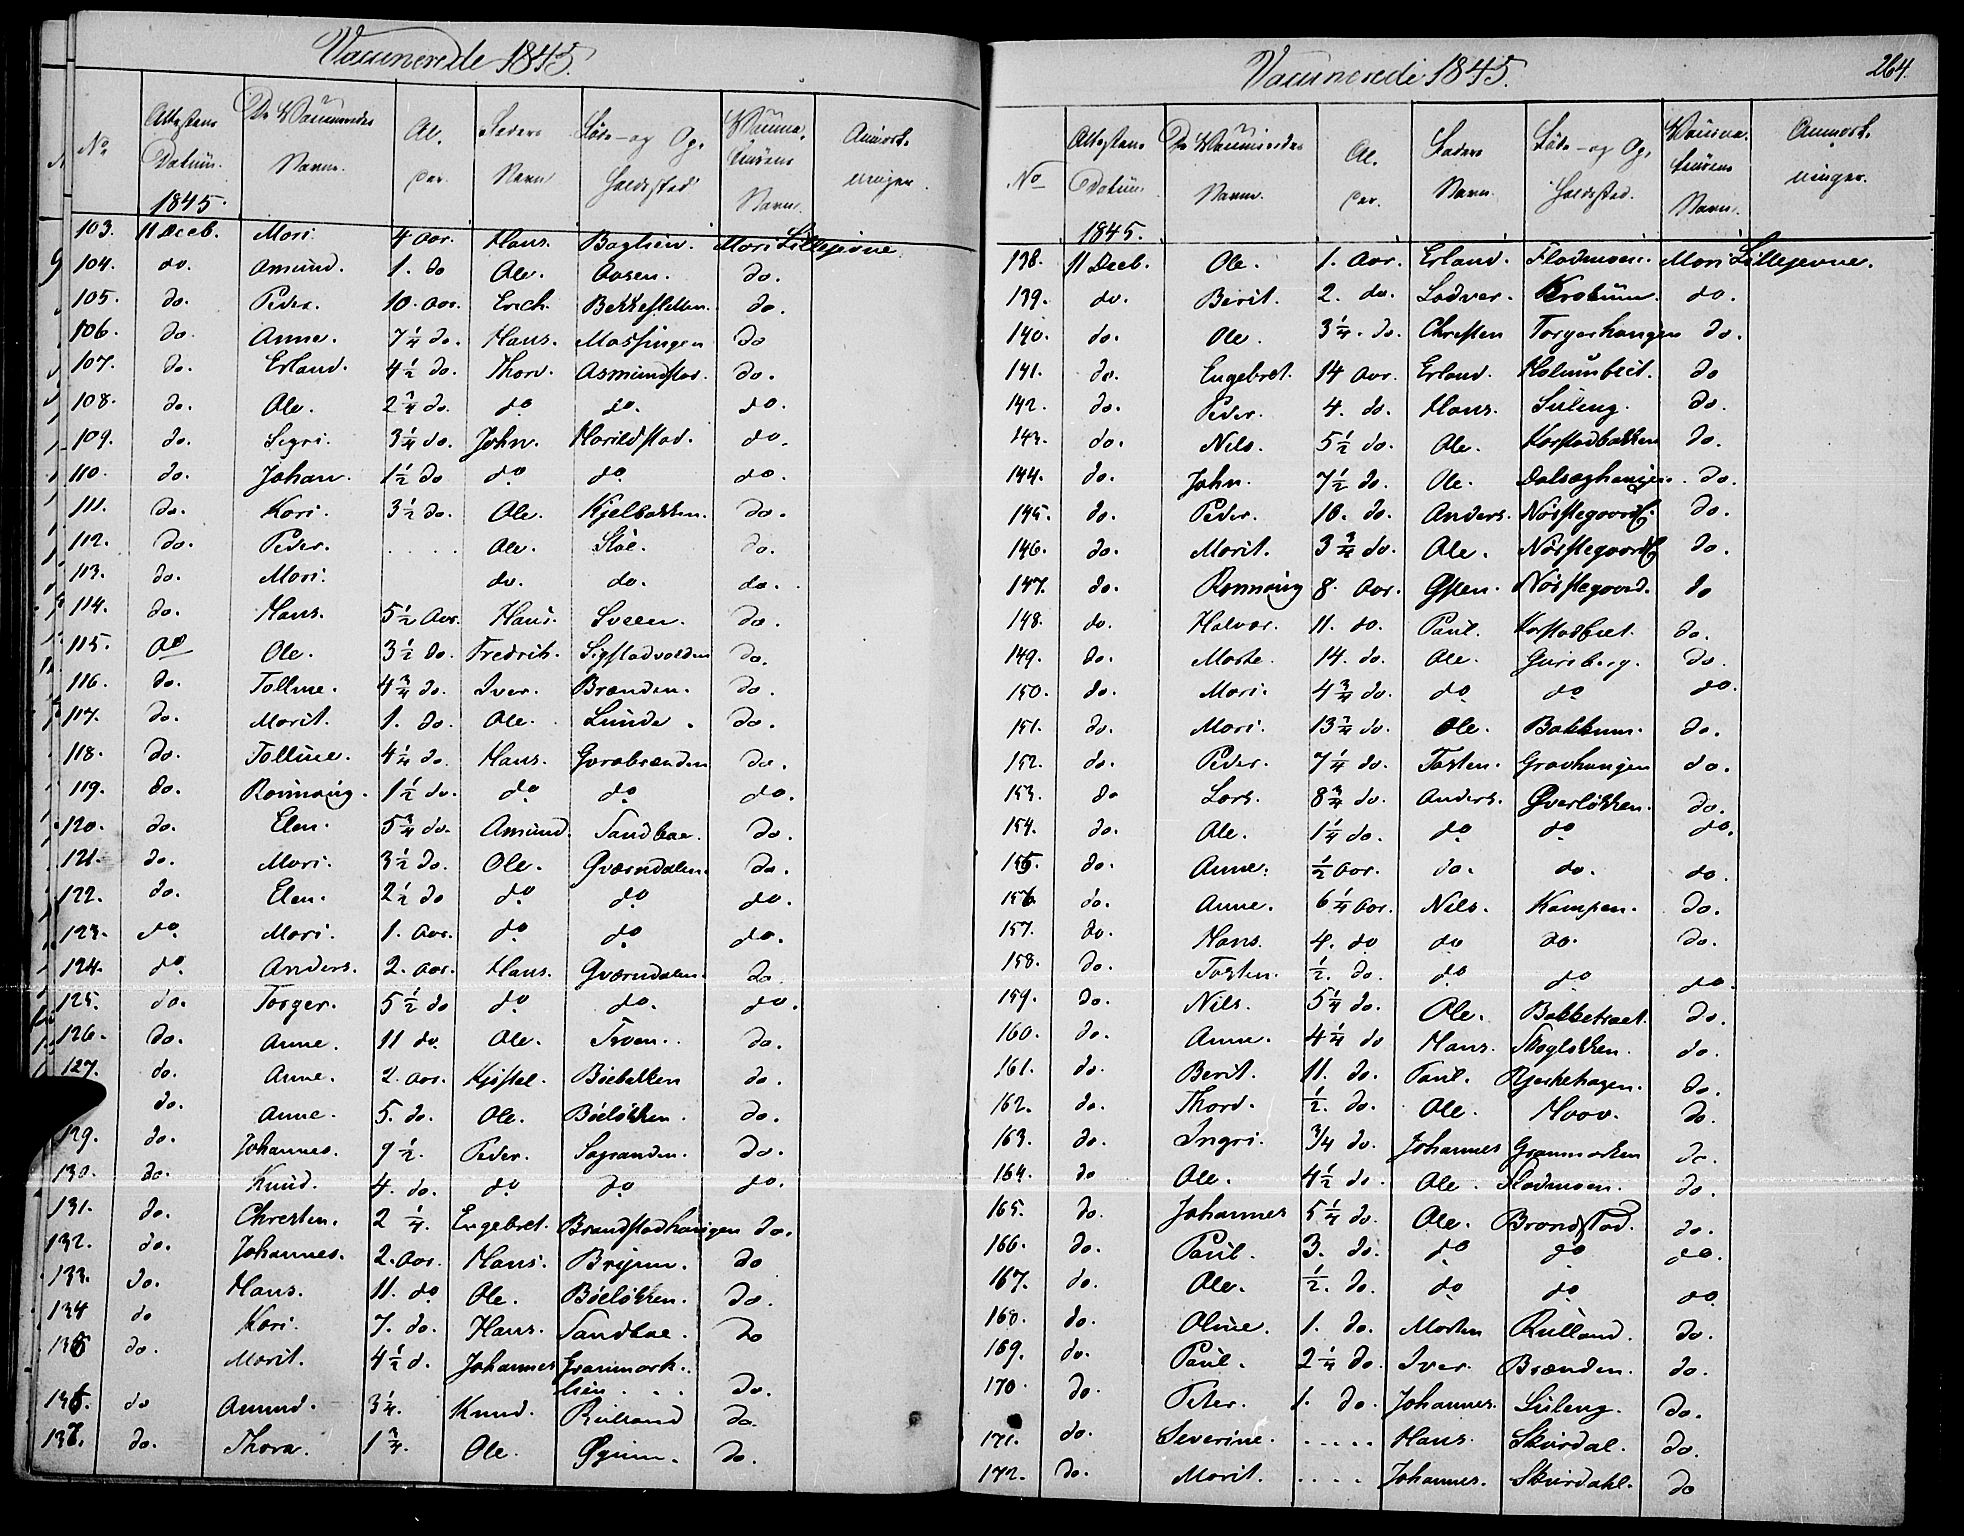 Vaccinerede 1845.
No. Attestens Datum. 1845. De Vaccineredes Navn. Alder. Faders Navn Føde- og Opholdssted Vaccinateurens Navn. Anmærkninger.
103. 11 Decb. Mari 4 Aar. Hans. Baglien. Mari Lillejevne.
104. do. Amund. 1. do Ole. Aasen. do.
105. do. Peder. 10. Aar. Erich. Bekkesletten. do.
106. do. Anne. 7 1/4 do. Hans. Massingen do
107. do. Erland. 4 1/2 do. Thorv. Asmundstad. do.
108. do. Ole. 2 3/4 do. do do. do.
109. do. Segri. 3 1/4 do. John. Harildstad. do.
110. do. Johan. 1 1/2 do do do. do.
111. do. Kari. 3 1/2 do. Ole. Kjelbakken. do.
112. do. Peder. .... Ole. Stöe. do.
113. do. Mari. do. do. do.
114. do. Hans. 5 1/2 Aar. Hans. Sveen. do.
115. do Ole. 3 1/2 do. Fredrik. Sigstadvolden do.
116. do. Tolline. 4 3/4 do. Iver. Brænden. do.
117. do. Marit. 1. do. Ole. Lunde. do.
118. do. Tolline. 4 1/4 do. Hans. Gvrabrænden do.
119. do. Rönnaug. 1 1/2 do. do do do.
120. do. Elen. 5 3/4 do. Amund. Sandboe. do.
121. do. Mari. 3 1/2 do. Ole. Qværndalen. do.
122. do. Elen. 2 1/2 do do do do.
123. do. Mari. 1. Aar. do do do.
124. do. Anders. 2. Aar. Hans. Qværndalen. do
125. do. Torger. 5 1/2 do do do. do.
126. do. Anne. 11 do. Ole. Tvven. do.
127. do. Anne. 2. Aar. Kjöstel. Böebakken do.
do. Anne. 5. do. Ole. Böelökken. do.
129. do. Johannes. 9 1/2. Peder. Sagranden. do.
130. do. Knud. 4. do. do do do.
131. do. Christen. 2 1/4. Engebret. Brandstadhaugen do.
132. do. Johannes. 2. Aar. Hans. Bryum. do
133. do. Hans. 11. do Ole. Böelökken. do.
134 do Kari. 7. do. Hans. Sandboe. do
135 do. Marit. 4 1/2 d. Johannes Granmork-
lien. . . do.
136. do Amund. 3 1/4. Knud. Rulland do.
137. do. Thora. 1 3/4. Ole. Öyum. do.
Vaccinerede 1845.
264.
No Attestens Datum. 1845. De Vaccineredes Navn. Alder. Faders Navn. Føde- og Opholdssted. Vaccinateurens Navn. Anmærkninger.
138. 11 Decb. Ole. 1. Aar. Erland. Fladmoen. Mari Lillejevne.
139. do. Berit. 2. do. Ladver. Kroküm. do.
140. do. Ole. 3 1/4. do. Christen Torgerhaugen do.
141. do. Engebret. 14 Aar. Erland. Holumbræt. do
142. do. Peder. 4. do. Hans. Suleng. do.
143. do. Nils. 5 1/2 do. Ole. Korstadbakken do.
144. do. John. 7 1/2 do. Ole. Dalsæghaugen. do.
145. do. Peder. 10. do. Anders. Nörstegaard. do.
146. do. Marit. 3 3/4 do. Ole. Nörstegaard do.
147. do. Rönnaug 8. Aar. Östen. Nörstegaard. do
148. do. Halvor. 11. do. Paul. Korstadbræt. do.
149. do. Marte. 14. do. Ole. Gunsberg. do.
150. do. Mari. 4 3/4 do. do do do.
151. do. Mari. 13 3/4 do. Ole. Bakkum. do.
152. do. Peder. 7 1/4 do. Tosten. Gravhaugen do.
153. do Lars. 8 3/4 do. Anders. Qverlökken. do.
154. do. Ole. 1 1/4 do. do do do.
155. do. Anne. 1/2 Aar. do. do. do.
156 do. Anne. 6 1/4 Aar. Nils. Kampen. do.
157. do. Hans. 4. do do do. do.
158. do. Tosten. 1/2. do. do do do.
159. do. Nils. 5 1/4 do. Ole. Bakketræt. do.
160. do. Anne. 4 1/4 do Hans. Skoglökken. do.
161. do. Berit. 11. do. Paul. Kjerkehagen. do.
162. do. Thord. 1/2. do. Ole. Hoov. do.
163. do. Ingri. 3/4 do. Johannes Granmorken do.
164. do Ole. 4 1/2 do. Ole. Fladmoen. do.
165. do. Johannes 5 1/4 do. Ole. Brandstad. do.
166. do. Paul. 3. do. do do do.
167. do. Ole. 1/2. do. do do do.
168. do. Oline. 1. do. Morten Rulland. do.
169. do. Paul. 2 1/4 do. Iver. Brænden. do.
170 do. Peter. 1. do. Johannes. Suleng. do.
171. do. Severine. ..... Hans. Skurdal. do.
172. do. Marit. .... Johannes. Skurdahl. do